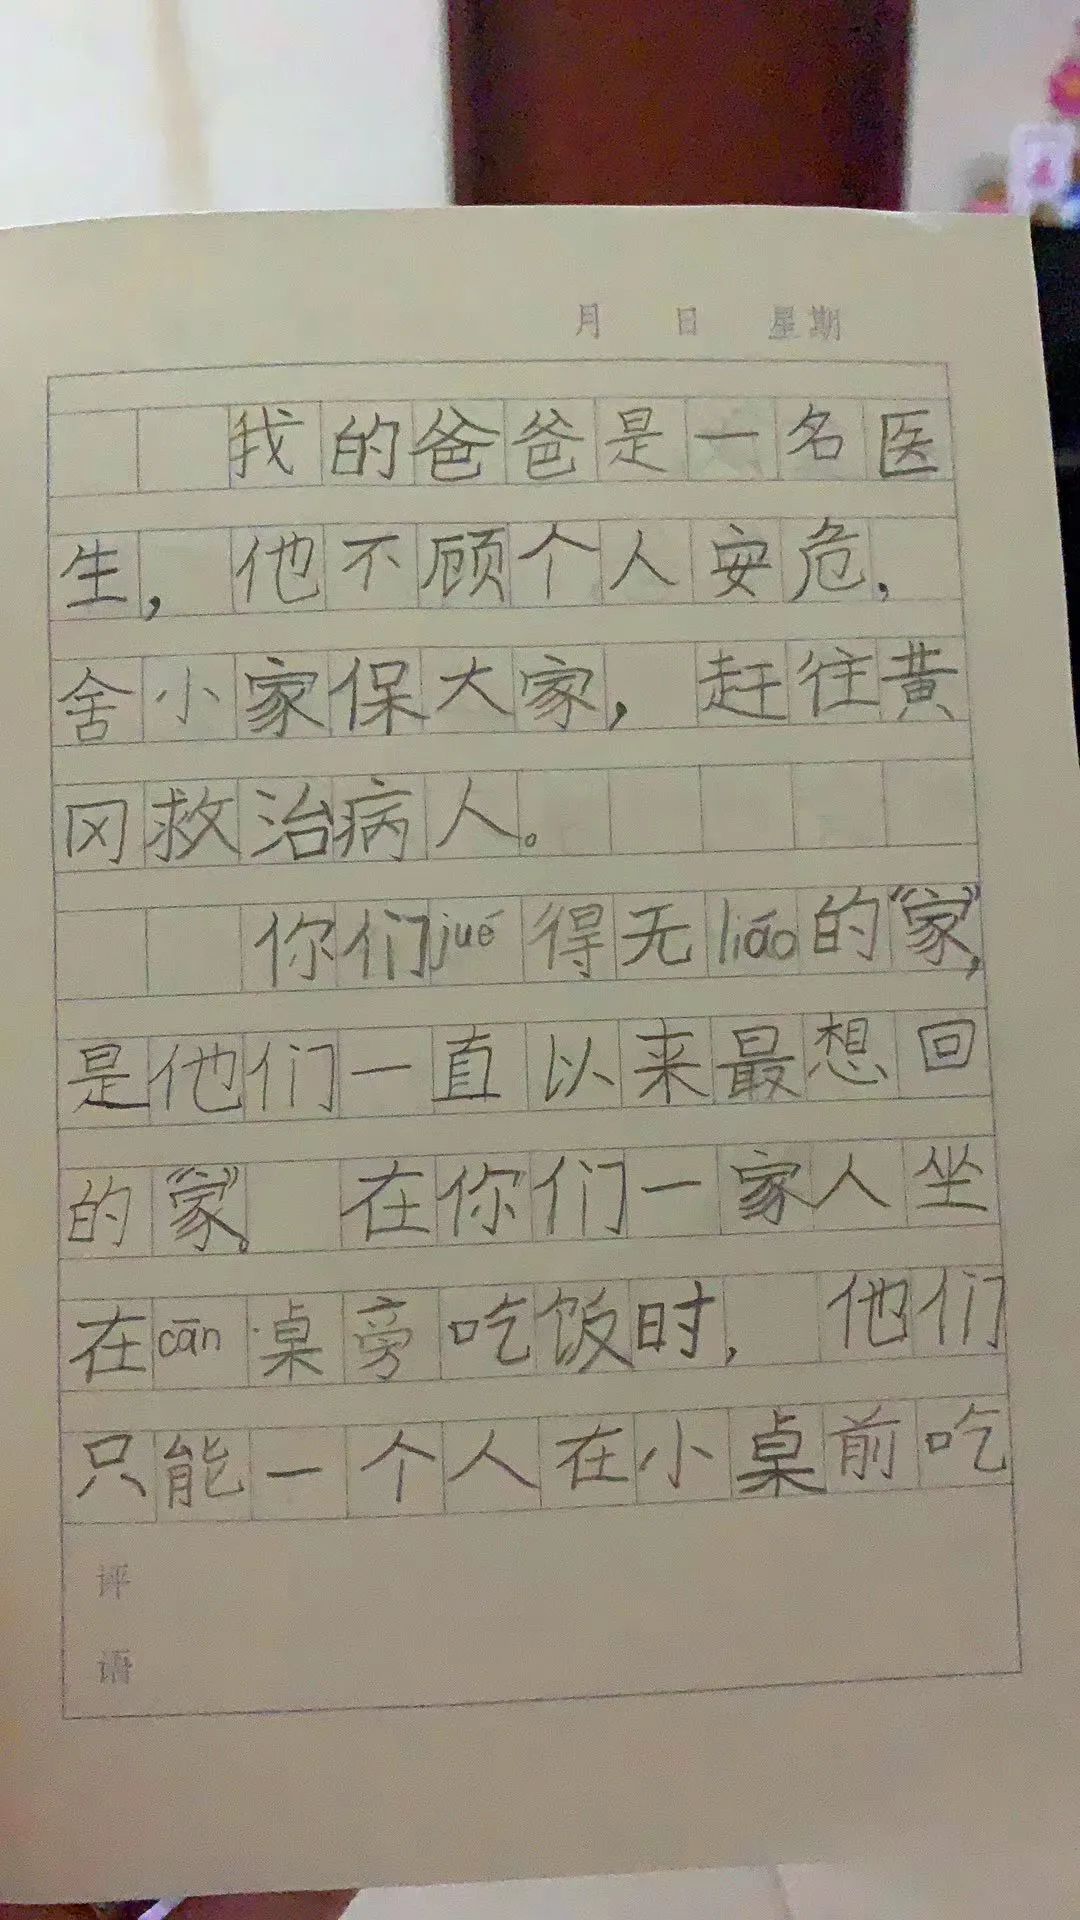 月 日 星期
我的爸爸是一名医
生，他不顾个人安危，
舍小家保大家，赶往黄
冈救治病人。
你们jué得无liáo的“家”，
是他们一直以来最想回
的“家”。在你们一家人坐
在cān桌旁吃饭时，他们
只能一个人在小桌前吃
评
语